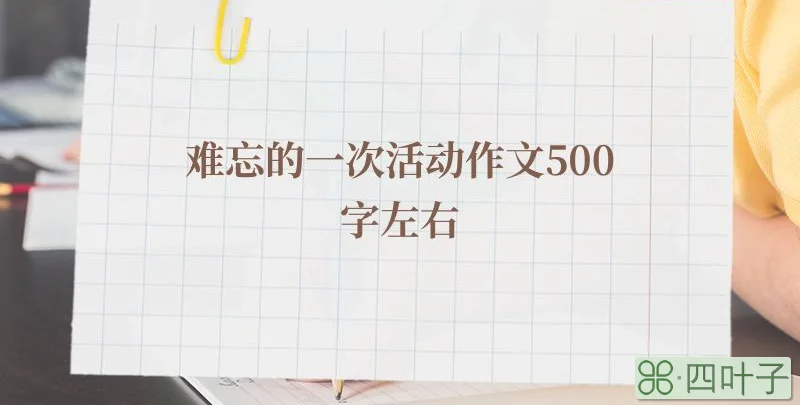 难忘的一次活动作文500
字左右
四叶子